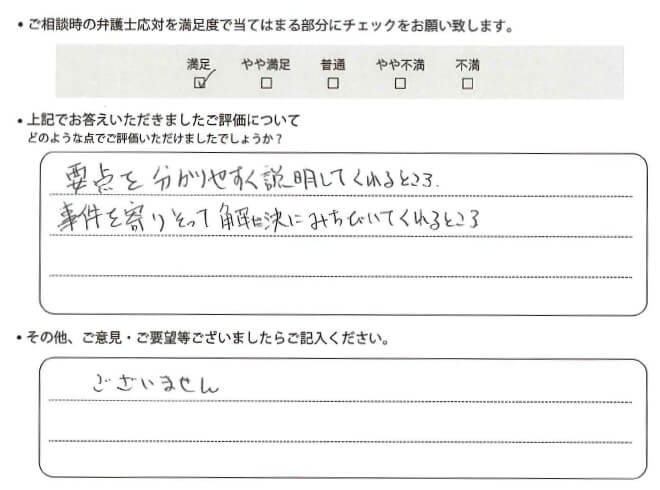 ・ご相談時の弁護士応対を満足度で当てはまる部分にチェックをお願い致します。
満足 やや満足 普通 やや不満 不満
・上記でお答えいただきましたご評価について
どのような点でご評価いただけましたでしょうか？
要点を分かりやすく説明してくれるところ.
事件を寄りそって解決にみちびいてくれるところ
・その他、ご意見・ご要望等ございましたらご記入ください。
ございません